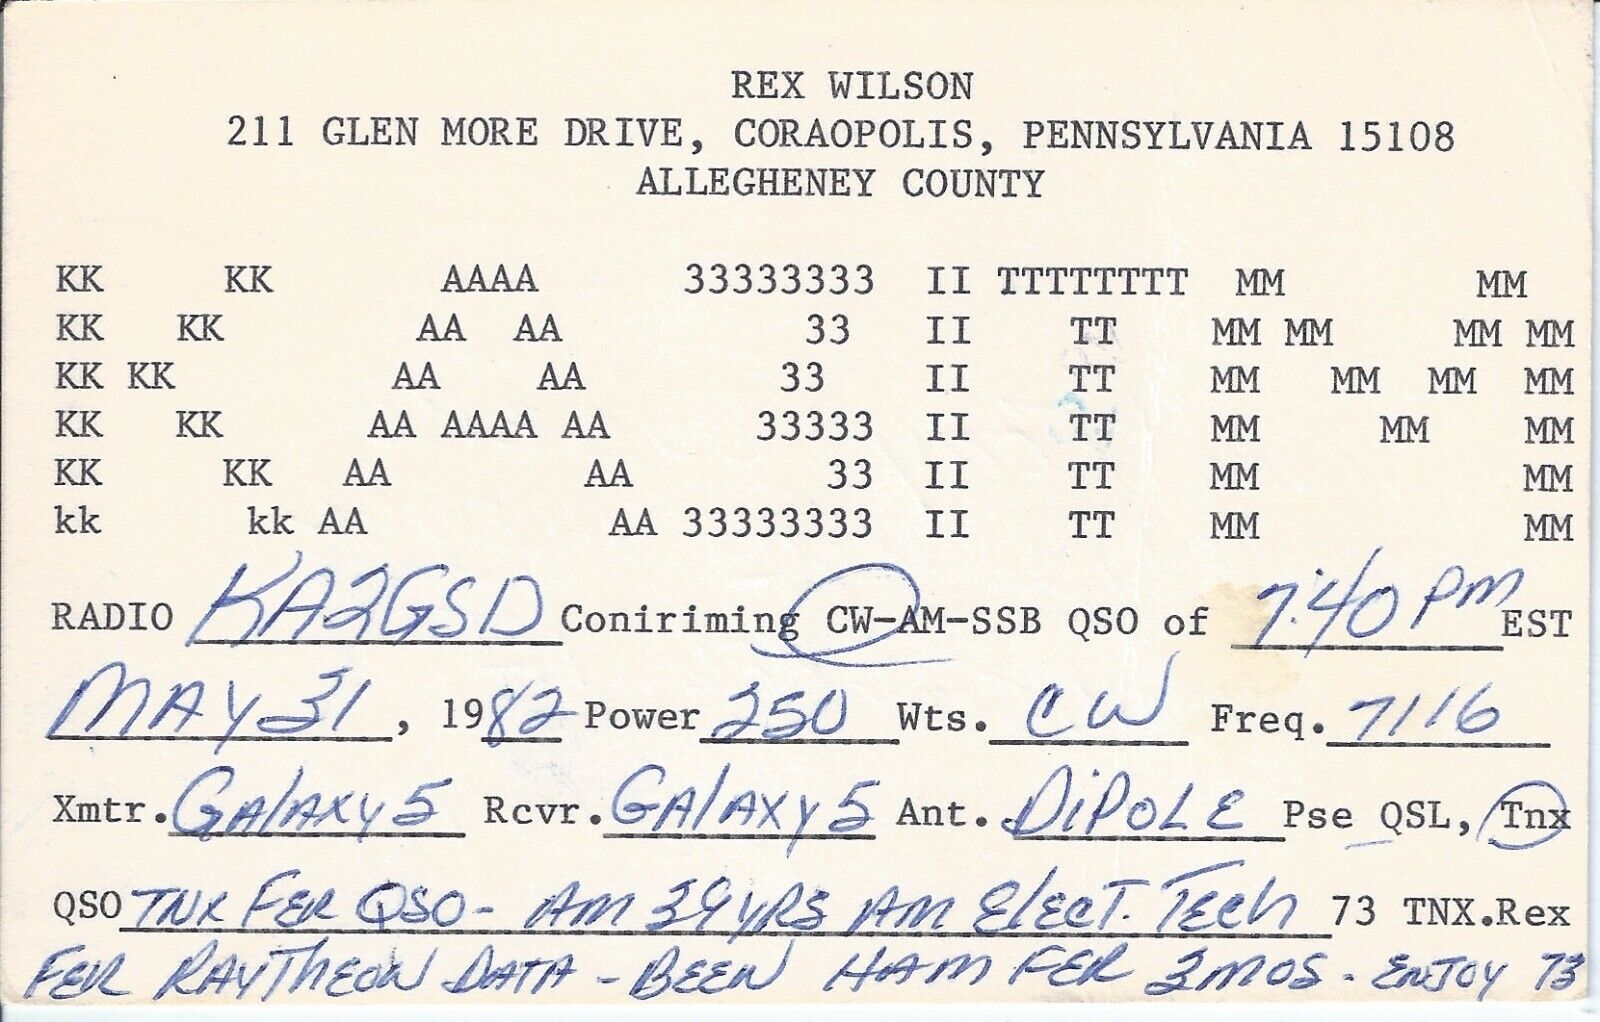 REX WILSON
211 GLEN MORE DRIVE, CORAOPOLIS, PENNSYLVANIA 15108
ALLEGHENEY COUNTY
KK     KK       AAAA      33333333  II TTTTTTTT  MM        MM
KK   KK        AA  AA          33   II    TT    MM MM     MM MM
KK KK         AA    AA        33    II    TT    MM   MM  MM  MM
KK   KK      AA AAAA AA      33333  II    TT    MM     MM    MM
KK     KK   AA        AA        33  II    TT    MM           MM
kk      kk AA          AA 33333333  II    TT    MM           MM
RADIO KA2GSD Coniriming CW-AM-SSB QSO of 7:40 PM EST
MAY 31, 1982 Power 250 Wts. CW Freq. 7116
Xmtr. GALAXY 5 Rcvr. GALAXY 5 Ant. DiPOLE Pse QSL, Tnx
QSO TNX FER QSO- AM 39 YRS AM ElECT. TECH 73 TNX.Rex
FER RAYTHEON DATA - BEEN HAM FER 3 MOS - ENJOY 73